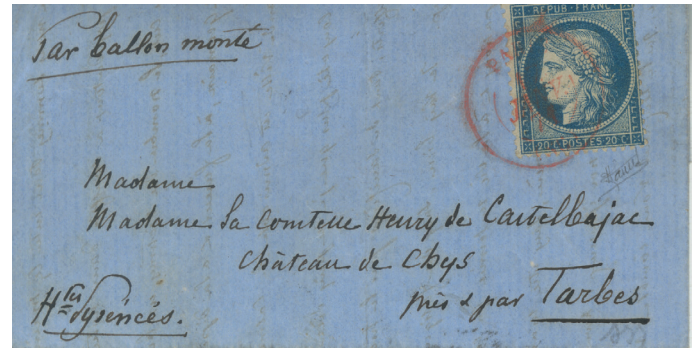 Par ballon monté
REPUB·FRANC·
20 C·POSTES 20 C
Madame
Madame la Comtesse Henry de Castelbajac
Château de Chys
près & par Tarbes
Htes Pyrénées.